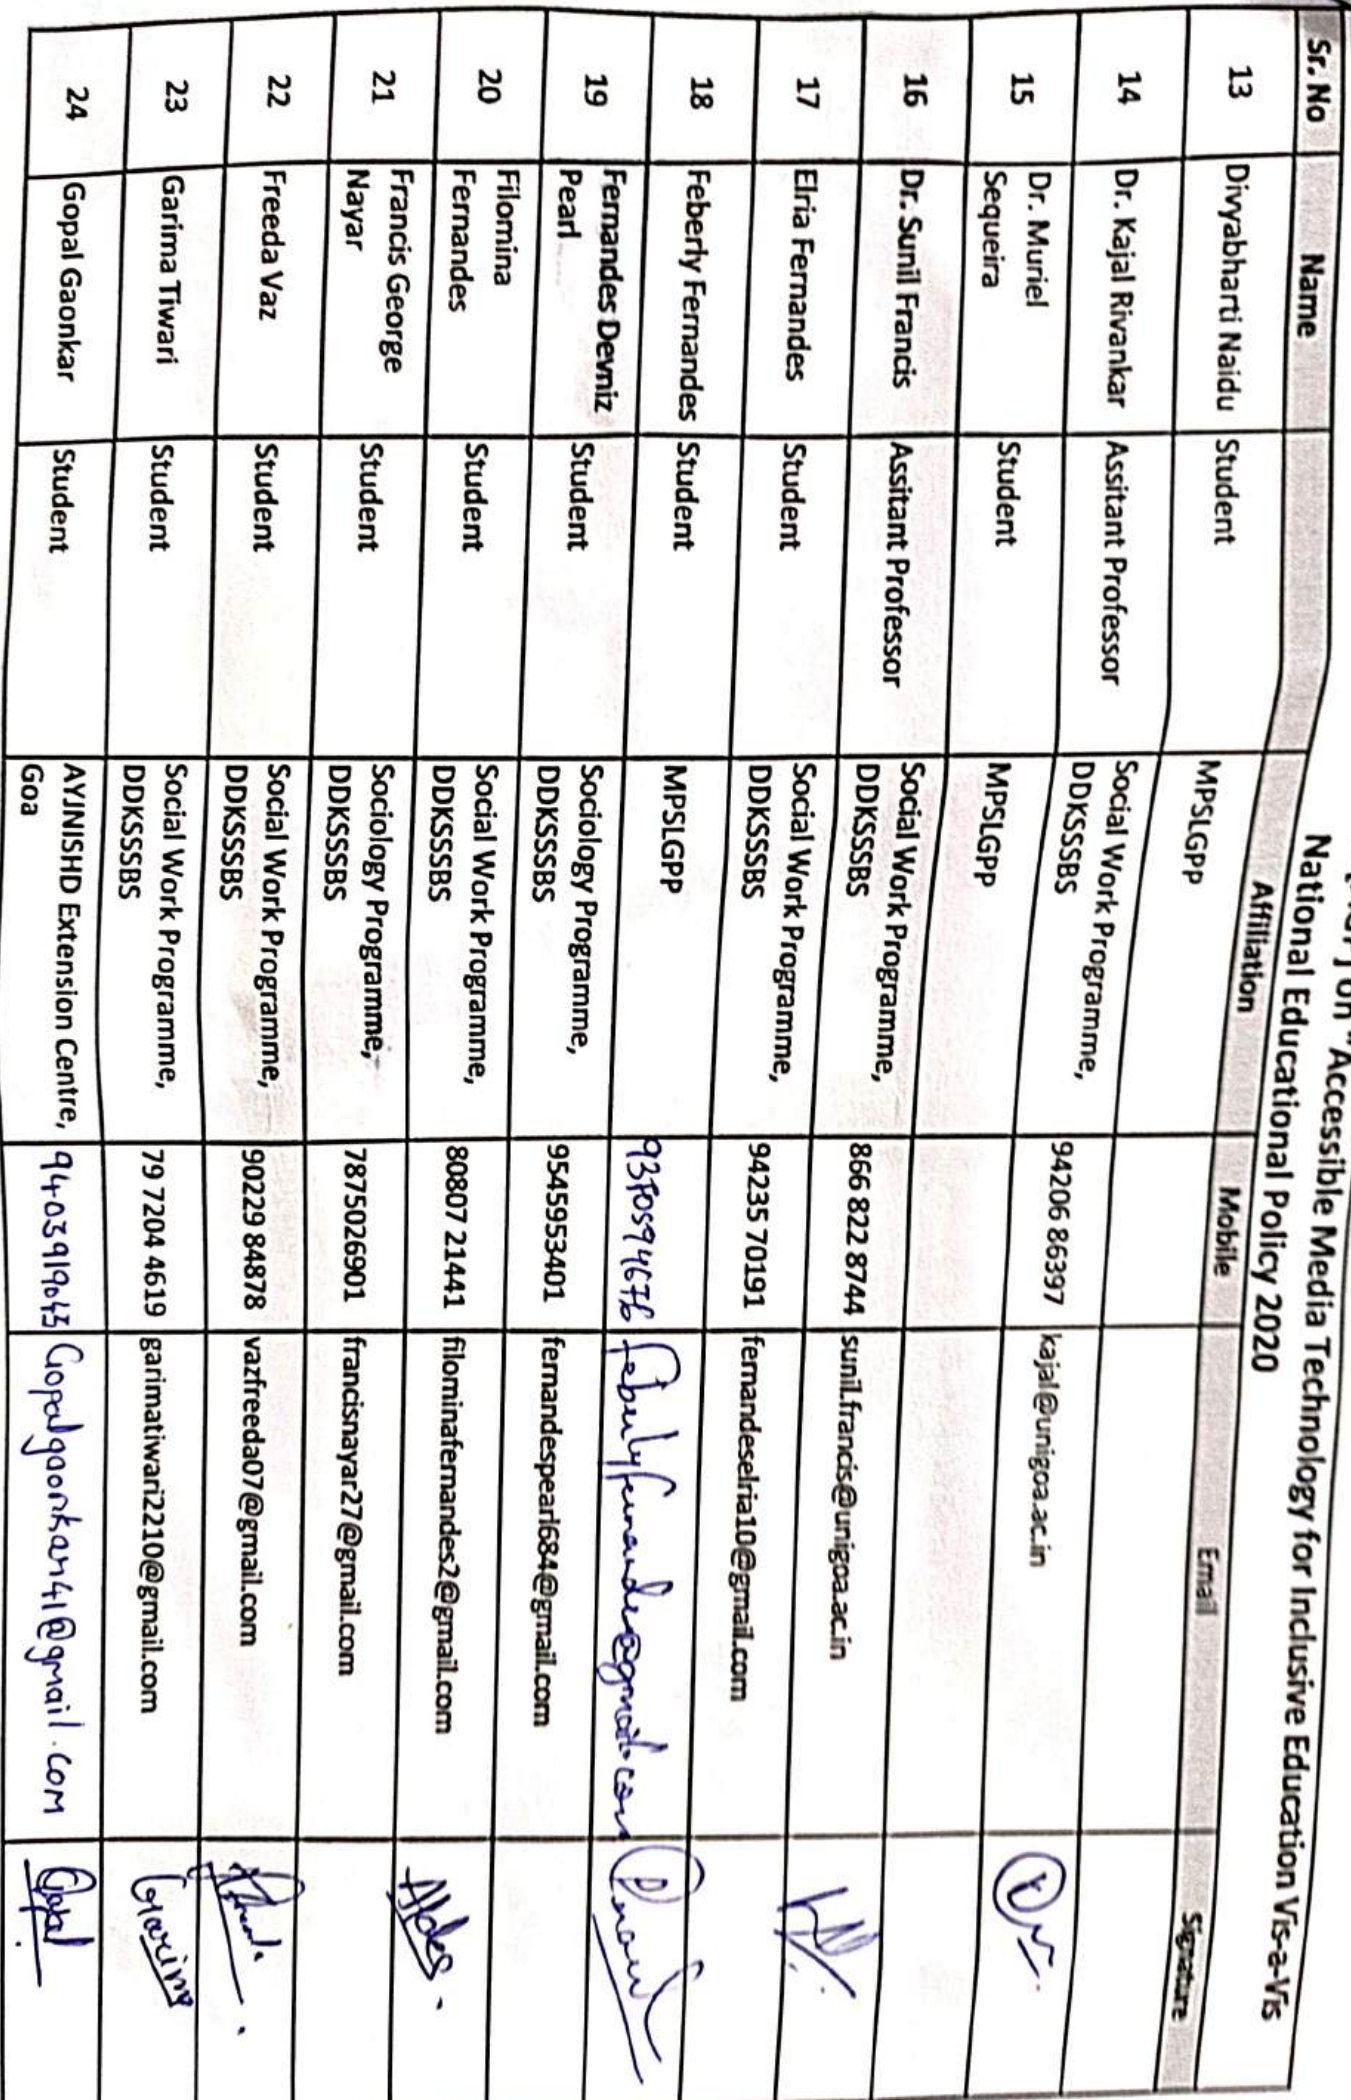 on "Accessible Media Technology for Inclusive Education Vis-a-Vis
National Educational Policy 2020
Sr. No Name Affiliation Mobile Email Signature
13 Divyabharti Naidu Student MPSLGPP
14 Dr. Kajal Rivankar Assitant Professor Social Work Programme, DDKSSSBS 94206 86397 kajal@unigoa.ac.in
15 Dr. Muriel Sequeira Student MPSLGPP
16 Dr. Sunil Francis Assitant Professor Social Work Programme, DDKSSSBS 866 822 8744 sunil.francis@unigoa.ac.in
17 Elria Fernandes Student Social Work Programme, DDKSSSBS 94235 70191 fernandeselria10@gmail.com
18 Feberly Fernandes Student MPSLGPP feberlyfernandes@gmail.com
19 Fernandes Devniz Pearl Student Sociology Programme, DDKSSSBS 9545953401 fernandespearl684@gmail.com
20 Filomina Fernandes Student Social Work Programme, DDKSSSBS 80807 21441 filominafernandes2@gmail.com
21 Francis George Nayar Student Sociology Programme, DDKSSSBS 7875026901 francisnayar27@gmail.com
22 Freeda Vaz Student Social Work Programme, DDKSSSBS 90229 84878 vazfreeda07@gmail.com
23 Garima Tiwari Student Social Work Programme, DDKSSSBS 79 7204 4619 garimatiwari2210@gmail.com Garima
24 Gopal Gaonkar Student AYJNISHD Extension Centre, Goa 9403919043 Gopalgaonkar41@gmail.com Gopal